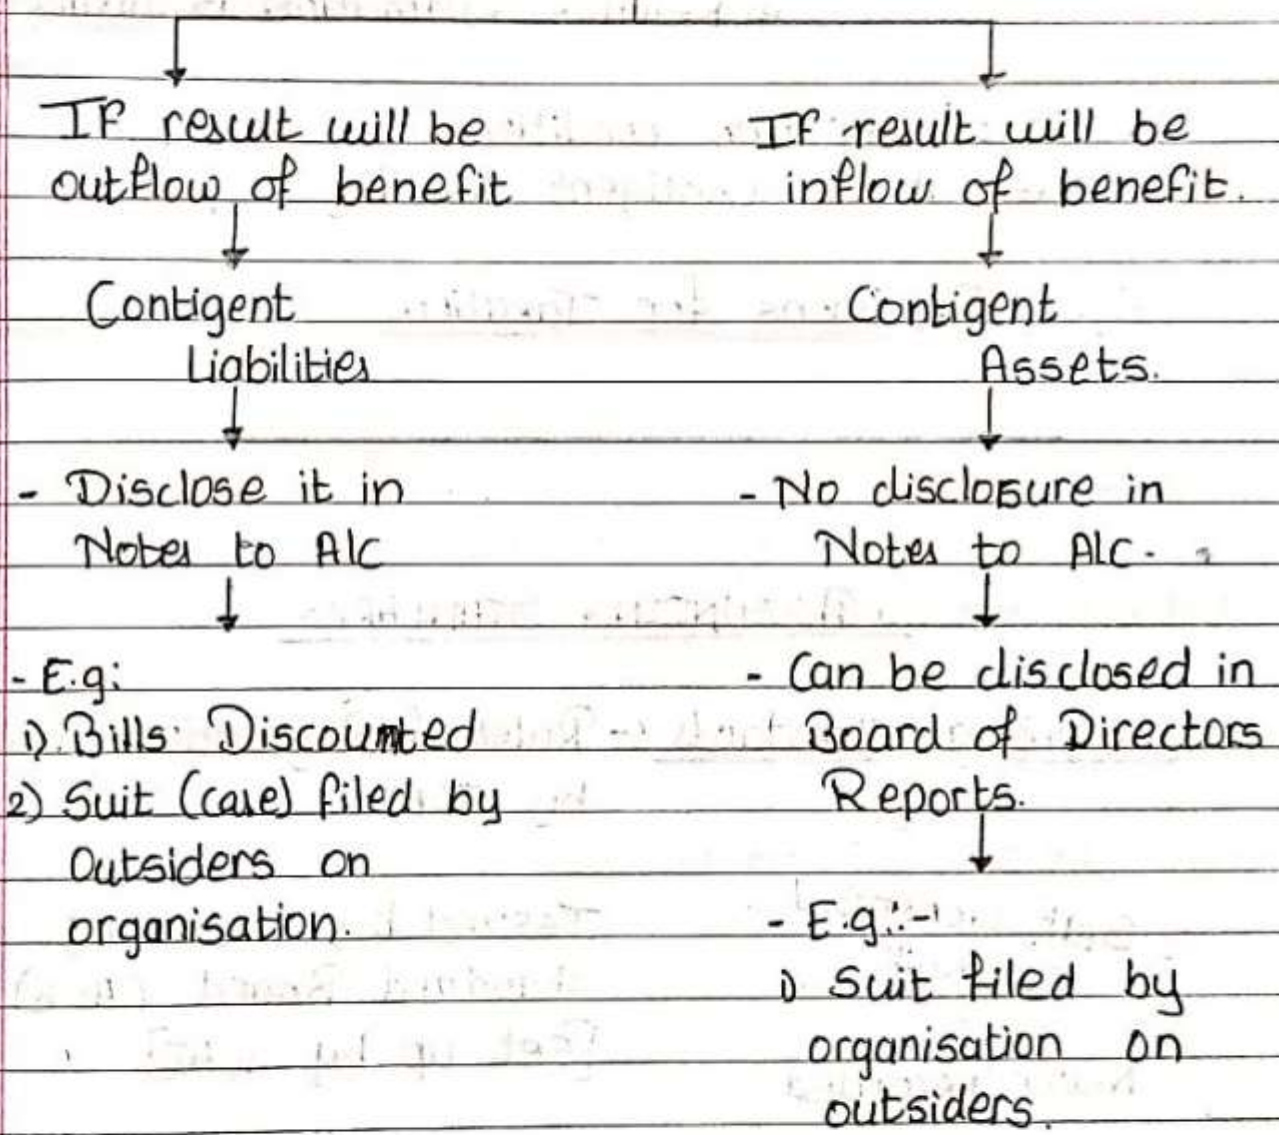 If result will be
outflow of benefit
Contigent
Liabilities
- Disclose it in
Notes to A/c
- E.g:
1) Bills Discounted
2) Suit (case) filed by
Outsiders on
organisation.
If result will be
inflow of benefit.
Contigent
Assets.
- No disclosure in
Notes to A/c.
- Can be disclosed in
Board of Directors
Reports.
- E.g:-
1) Suit filed by
organisation on
outsiders.